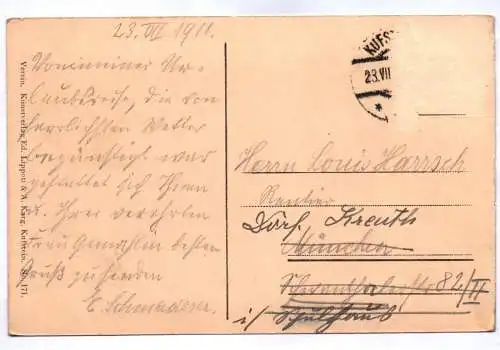 23. VII 1911.
Von meiner Ur-
laubsreise, die vom
herrlichsten Wetter
begünstigt war
gestattet sich Ihnen
u. Ihrer verehrten
Frau Gemahlin besten
Gruß zu senden
E. Schmaderer.
Verein. Kunstverlag Ed. Lippott & A. Karg, Kufstein. No. 171.
KUFS
23.VII
*
Herrn Louis Harrsch
Rentier
Dorf Kreuth
München
Schwanthalerstr 82/II
i/ Schulhaus